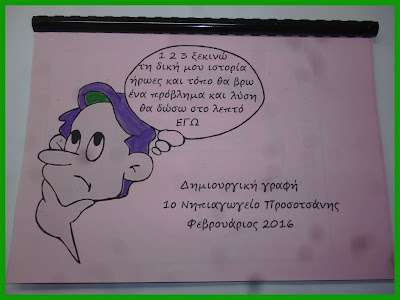 1 2 3 ξεκινώ
τη δική μου ιστορία
ήρωες και τόπο θα βρω
ένα πρόβλημα και λύση
θα δώσω στο λεπτό
ΕΓΩ
Δημιουργική γραφή
1ο Νηπιαγωγείο Προσοτσάνης
Φεβρουάριος 2016